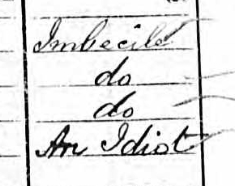 Imbecile
do
do
An Idiot